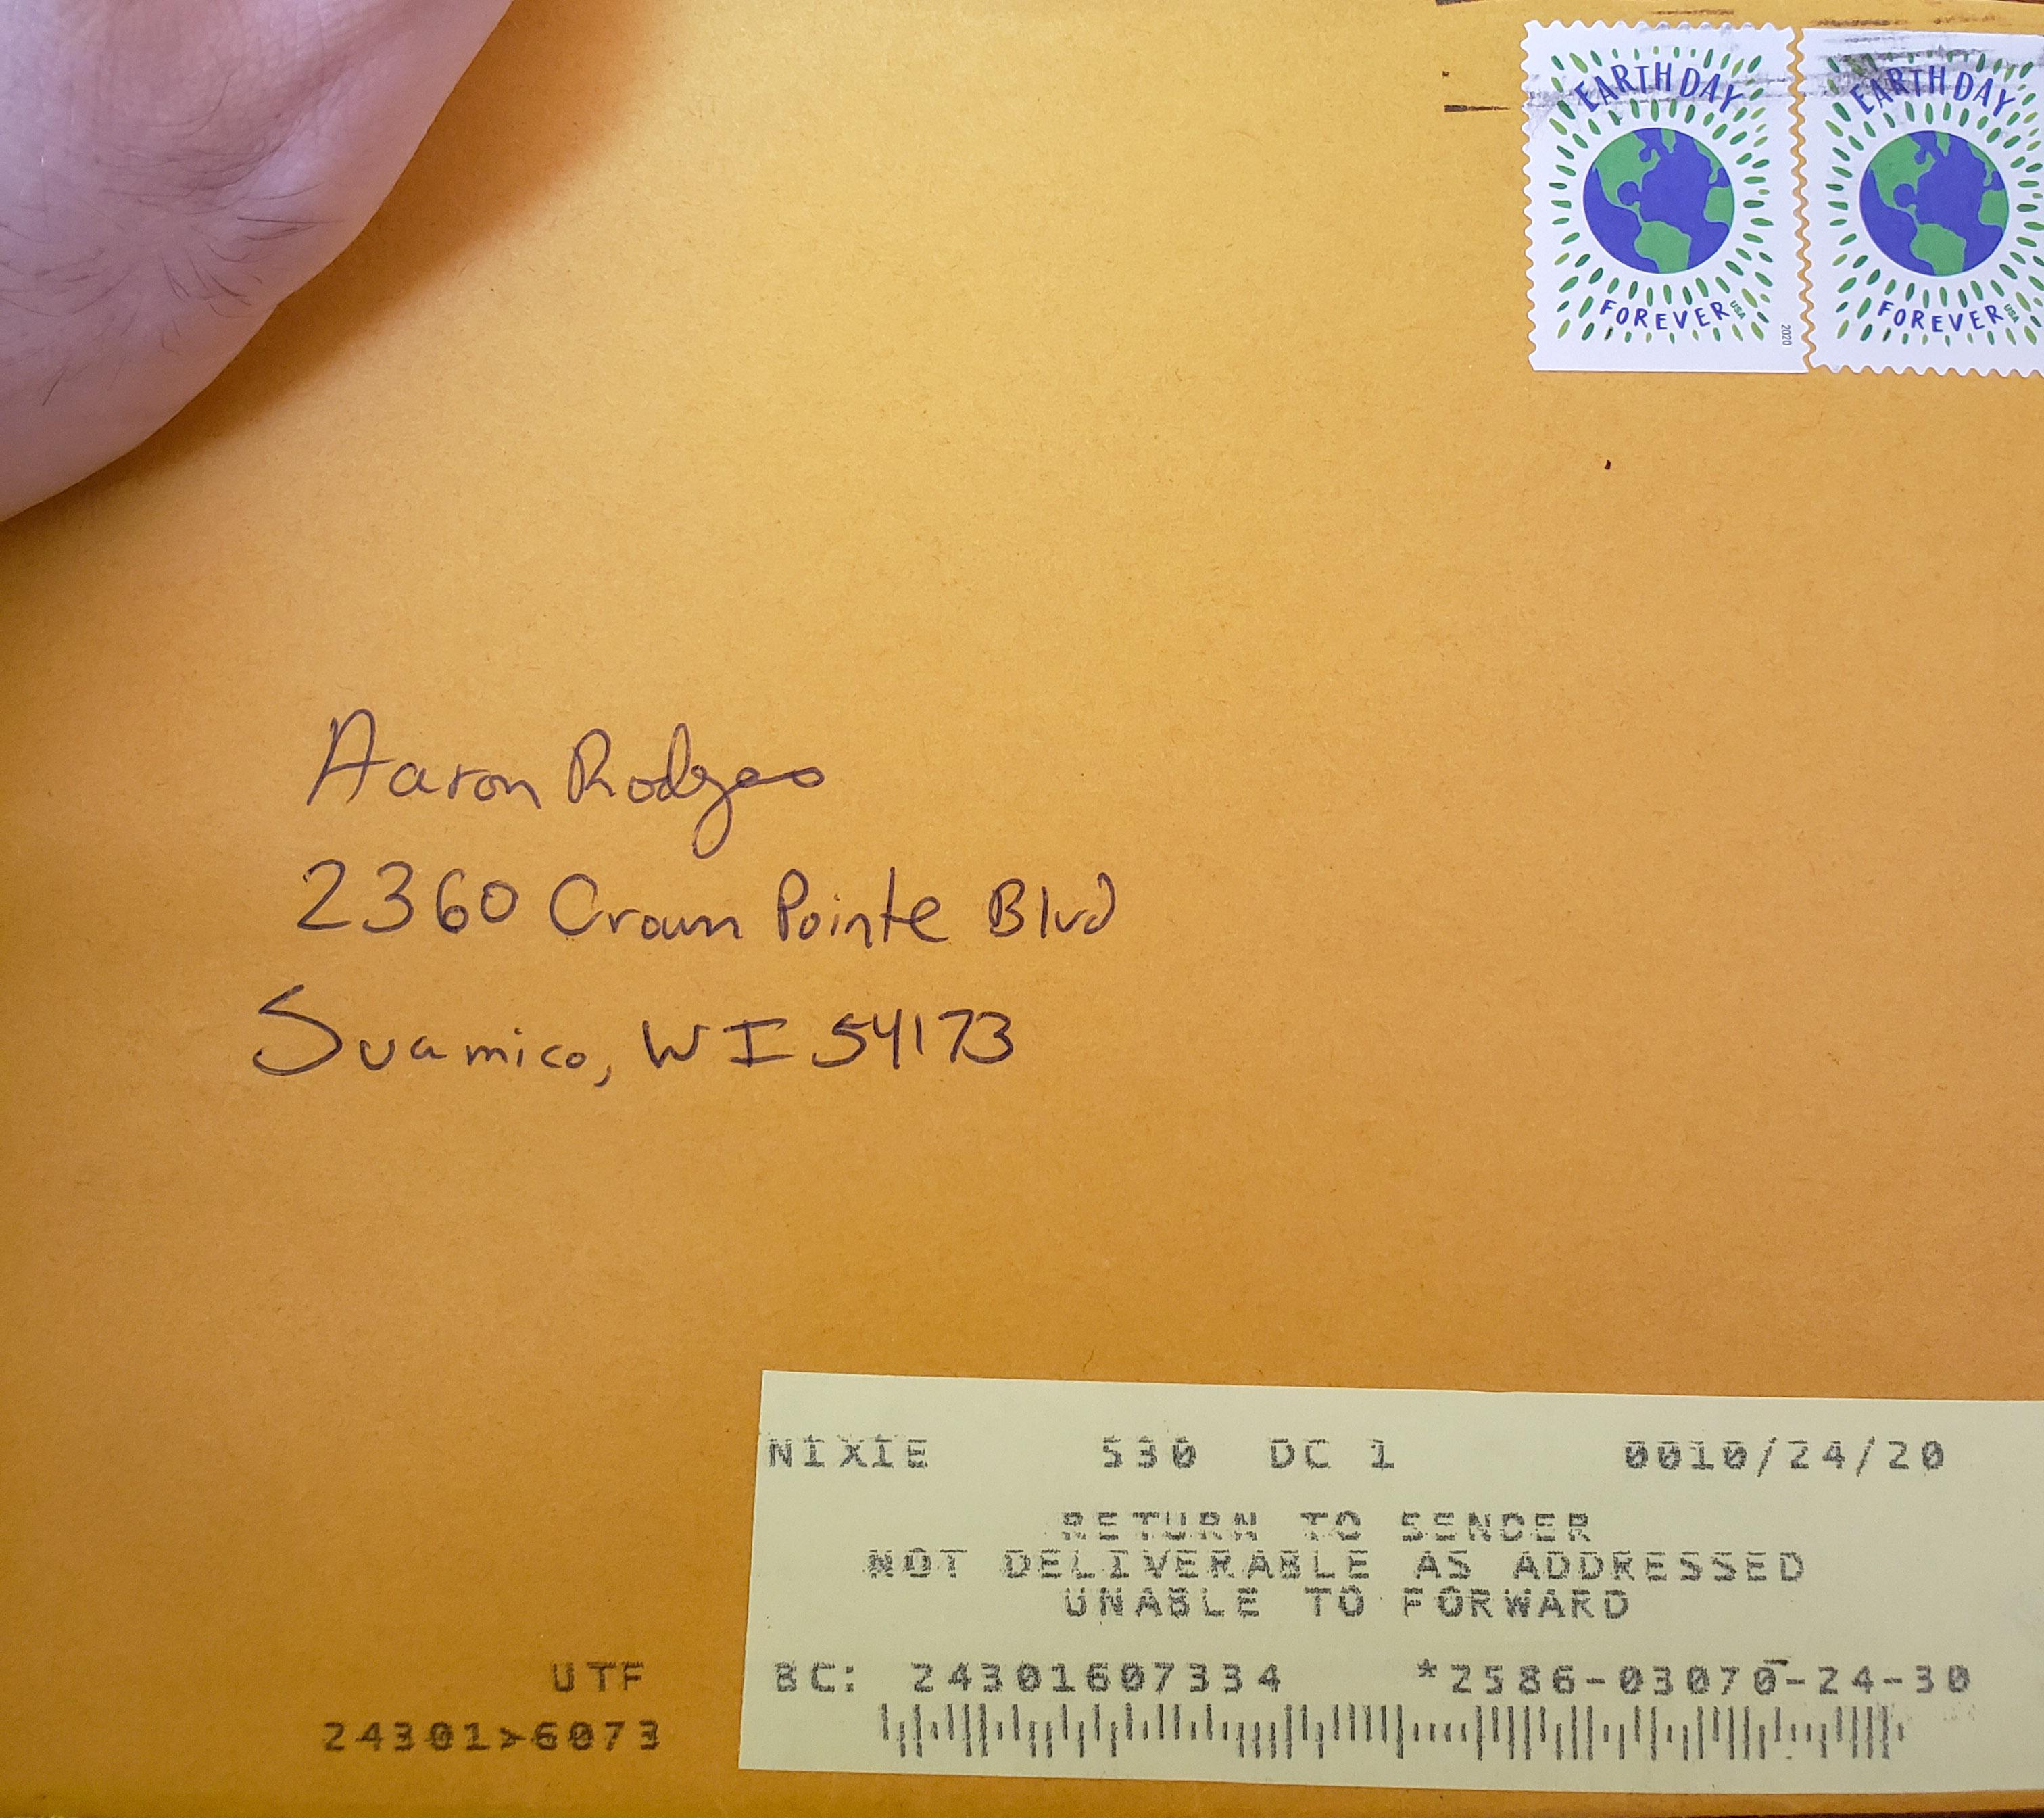 EARTH DAY
FOREVER USA
2020
EARTH DAY
FOREVER USA
Aaron Rodgers
2360 Crown Pointe Blvd
Suamico, WI 54173
NIXIE 530 DC 1 0010/24/20
RETURN TO SENDER
NOT DELIVERABLE AS ADDRESSED
UNABLE TO FORWARD
UTF
BC: 24301607334 *2586-03070-24-30
24301>6073